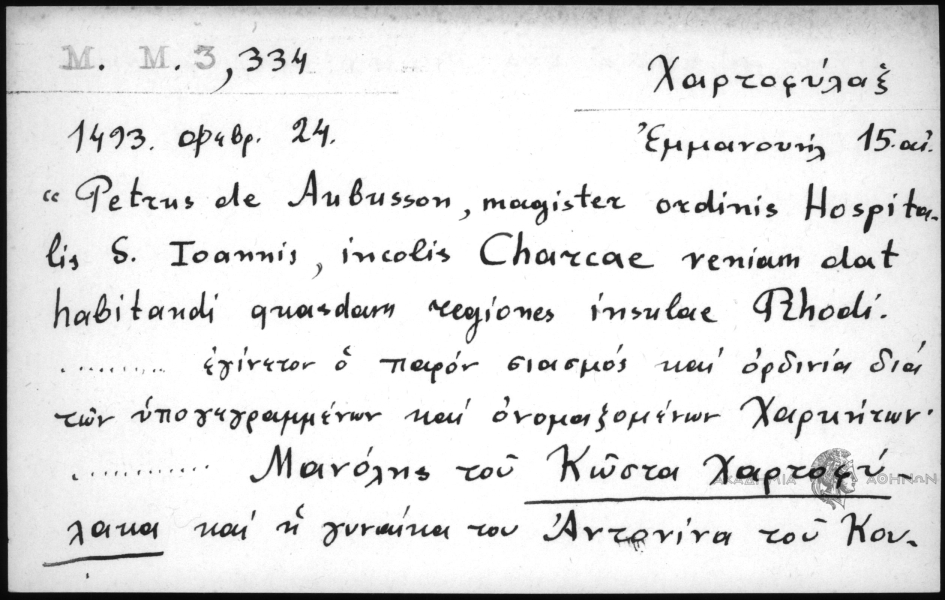 M. M. 3, 334
Χαρτοφύλαξ
1493. Φεβρ. 24.
Ἐμμανουήλ 15.αἰ.
“Petrus de Aubusson, magister ordinis Hospita-
lis S. Ioannis, incolis Charcae veniam dat
habitandi quasdam regiones insulae Rhodi.
.......... ἐγίνετον ὁ παρόν σιασμός καί ὀρδινία διά
τῶν ὑπογεγραμμένων καί ὀνομαζομένων Χαρκήτων·
............. Μανόλης τοῦ Κῶστα Χαρτοφύ-
λακα καί ἡ γυναίκα του Ἀντωνίνα τοῦ Κου-
ΑΚΑΔΗΜΙΑ ΑΘΗΝΩΝ